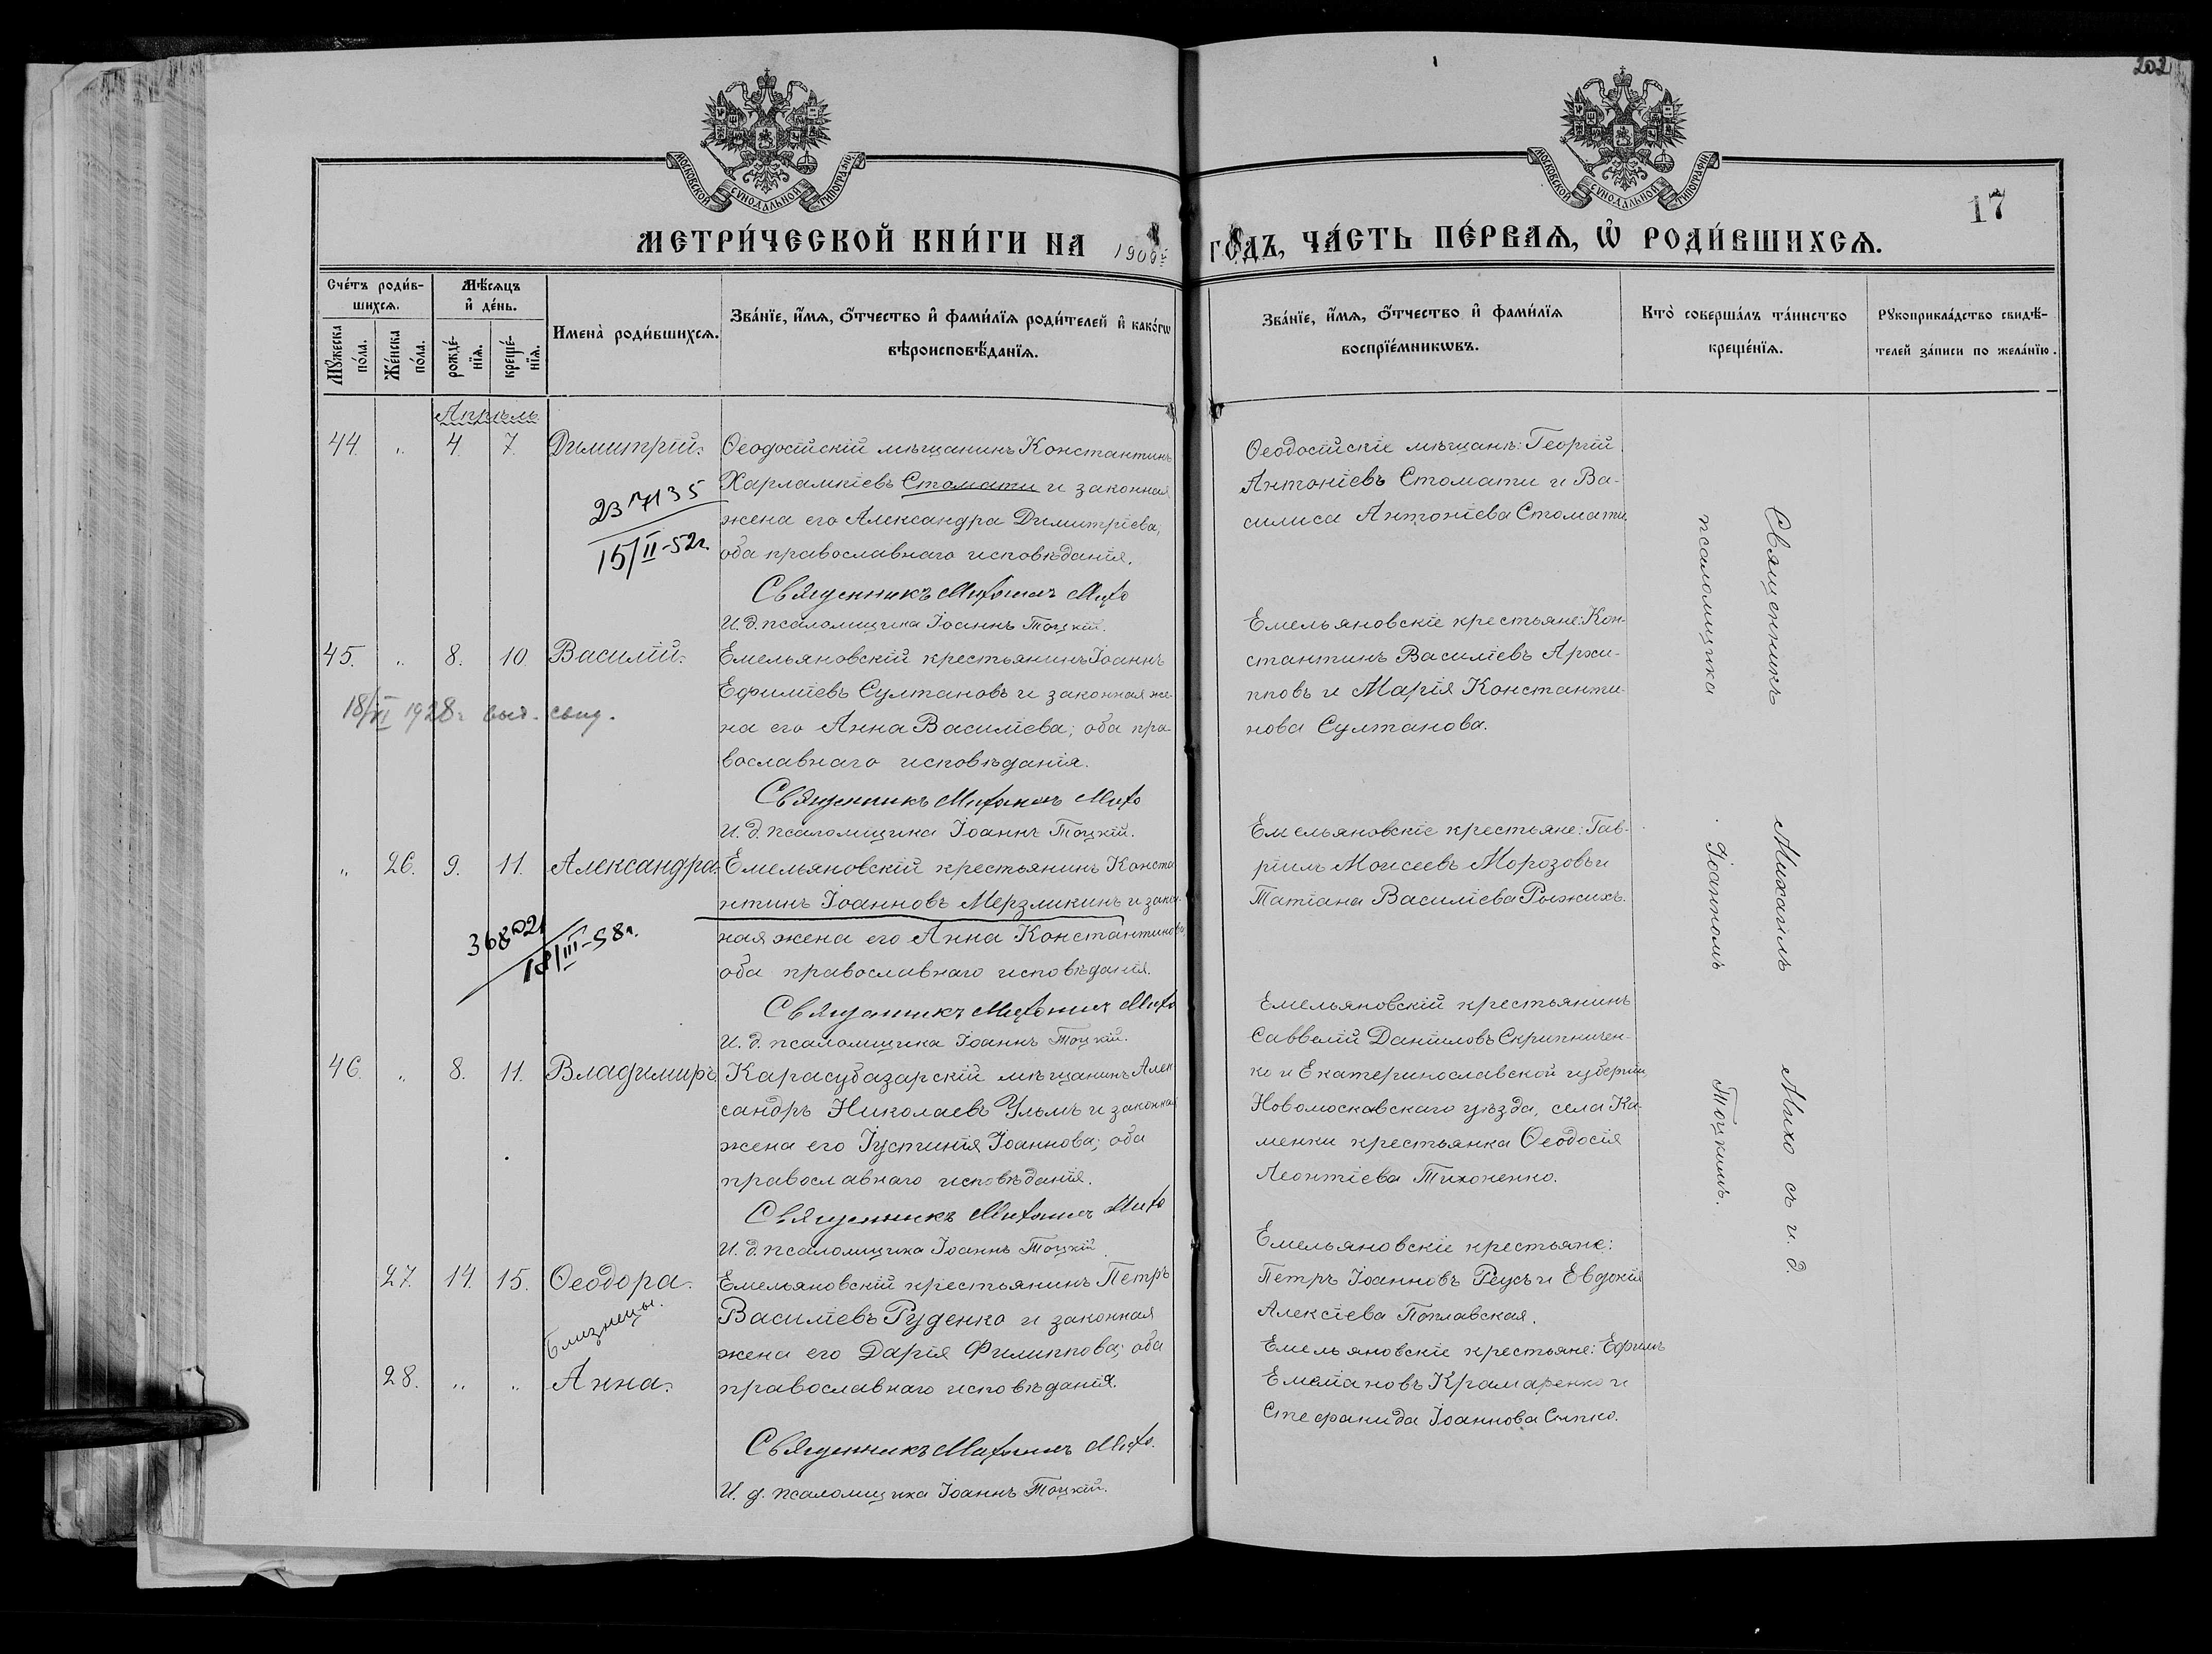 202
МОСКОВСКОЙ СѴНОДАЛЬНОЙ ТИПОГРАФІИ
МОСКОВСКОЙ СѴНОДАЛЬНОЙ ТИПОГРАФІИ
17
МЕТРИ́ЧЕСКОЙ КНИ́ГИ НА 1906й ГО́ДЪ, ЧА́СТЬ ПЕ́РВАѦ, Ѡ҆ РОДИ́ВШИХСѦ.
Сче́тъ роди́в-
шихсѧ.
Мꙋ́жеска по́ла.
Же́нска по́ла.
Мѣ́сѧцъ
и҆ де́нь.
рожде́-
нїѧ.
креще́-
нїѧ.
Имена̀ роди́вшихсѧ.
Зва́нїе, и҆́мѧ, ѻ҆́тчество и҆ фами́лїѧ роди́телей и҆ како́гѡ
вѣроисповѣ́данїѧ.
Зва́нїе, и҆́мѧ, ѻ҆́тчество и҆ фами́лїѧ
воспрїе́мникѡвъ.
Кто̀ соверша́лъ та́инство
креще́нїѧ.
Рꙋкоприкла́дство свидѣ́-
телей за́писи по жела́нїю.
Апрѣль
44. " 4. 7. Димитрій.
Ѳеодосійскій мѣщанинъ Константинъ
Харлампіевъ Стомати и законная
жена его Александра Димитріева;
оба православнаго исповѣданія.
Священникъ Михаилъ Михо
И. д. псаломщика Іоаннъ Тоцкій.
15/II-52г.
Ѳеодосійскіе мѣщане: Георгій
Антоніевъ Стомати и Ва-
силиса Антоніева Стомати.
45. " 8. 10. Василій.
18/VI 1928г выд. свид.
Емельяновскій крестьянинъ Іоаннъ
Ефиміевъ Султановъ и законная же-
на его Анна Василіева; оба пра-
вославнаго исповѣданія.
Священникъ Михаилъ Михо
И. д. псаломщика Іоаннъ Тоцкій.
Емельяновскіе крестьяне: Кон-
стантинъ Василіевъ Архи-
повъ и Марія Константи-
нова Султанова.
" 26. 9. 11. Александра.
18/III-58г.
Емельяновскій крестьянинъ Конста
нтинъ Іоанновъ Мерзликинъ и закон-
ная жена его Анна Константинова,
оба православнаго исповѣданія.
Священникъ Михаилъ Михо
И. д. псаломщика Іоаннъ Тоцкій.
Емельяновскіе крестьяне: Гав-
ріилъ Моисеевъ Морозовъ и
Татіана Василіева Рыжихъ.
46. " 8. 11. Владимиръ.
Карасубазарскій мѣщанинъ Алек
сандръ Николаевъ Ульмъ и законная
жена его Іустинія Іоаннова; оба
православнаго исповѣданія.
Священникъ Михаилъ Михо
И. д. псаломщика Іоаннъ Тоцкій.
Емельяновскій крестьянинъ
Савватій Даніиловъ Скрипничен-
ко и Екатеринославской губерніи,
Новомосковскаго уѣзда, села Ка-
менки крестьянка Ѳеодосія
Леонтіева Тихоненко.
27. 14. 15. Ѳеодора.
Близнецы.
28. " " Анна.
Емельяновскій крестьянинъ Петръ
Василіевъ Руденко и законная
жена его Дарія Филиппова; оба
православнаго исповѣданія.
Священникъ Михаилъ Михо.
И. д. псаломщика Іоаннъ Тоцкій.
Емельяновскіе крестьяне:
Петръ Іоанновъ Реусъ и Евдокія
Алексіева Поплавская.
Емельяновскіе крестьяне: Ефимъ
Емеліановъ Крамаренко и
Стефанида Іоаннова
Священникъ Михаилъ Михо съ и. д.
псаломщика Іоанномъ Тоцкимъ.